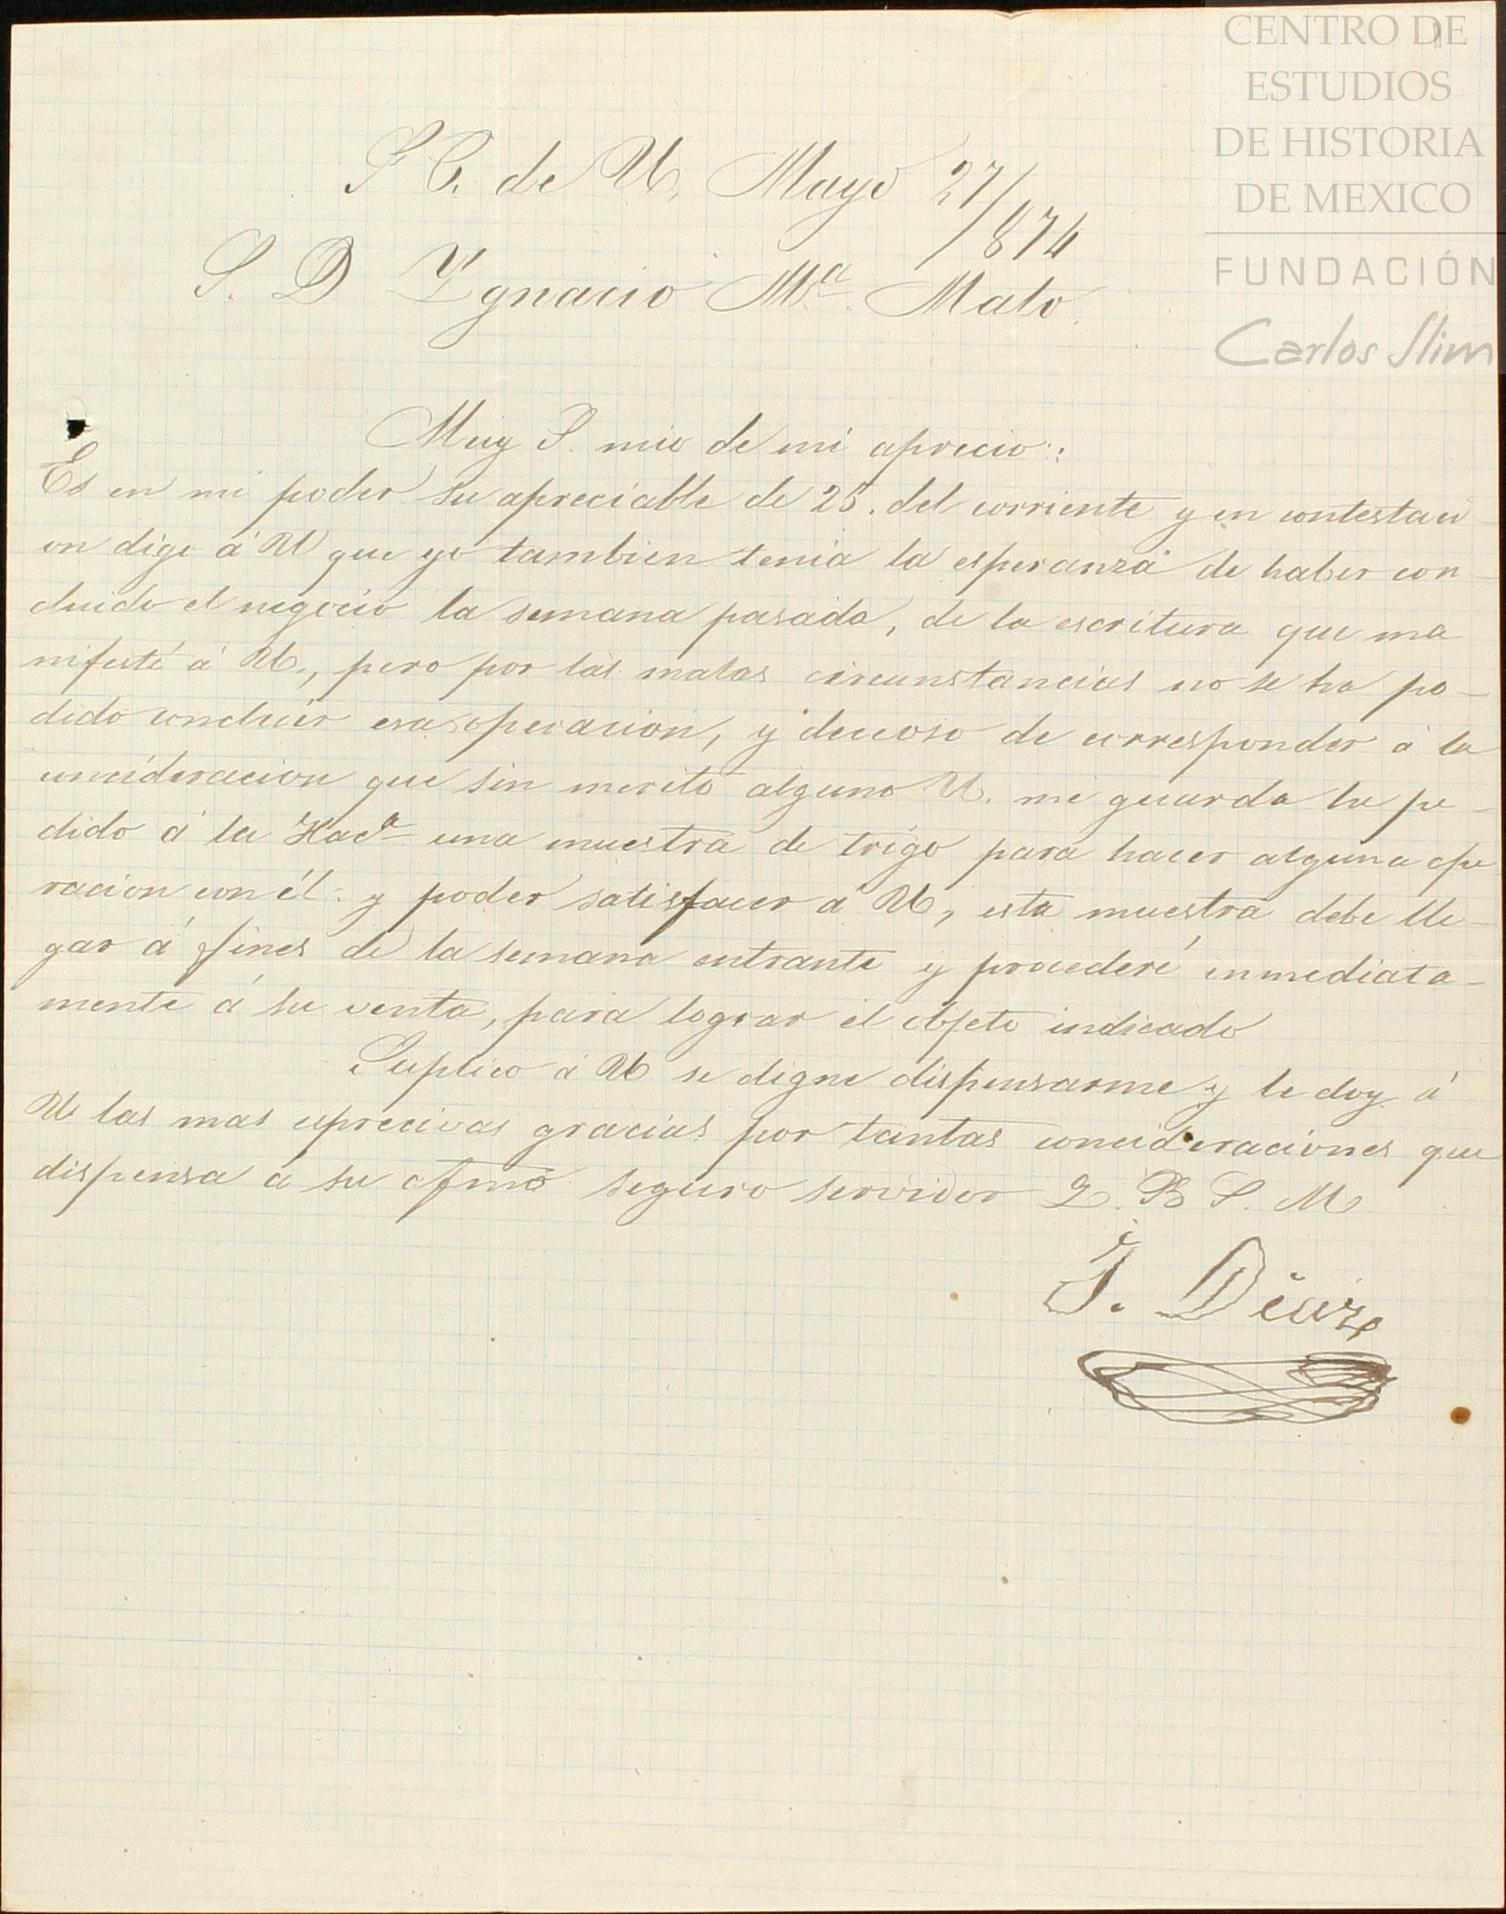 CENTRO DE
ESTUDIOS
DE HISTORIA
DE MEXICO
FUNDACIÓN
Carlos Slim
S C. de U, Mayo 27/874
S. D Ygnacio Mª. Malo.
Muy S. mio de mi aprecio:
Es en mi poder su apreciable de 25. del corriente y en contestaci
on digo á U que yo tambien tenia la esperanza de haber con
cluido el negocio la semana pasada, de la escritura que ma
nifesté á U., pero por las malas circunstancias no se ha po-
dido concluir esa operacion, y deceoso de corresponder á la
concideracion que sin merito alguno U. me guarda he pe-
dido á la Hacª una muestra de trigo para hacer alguna ope
racion con él. y poder satisfacer á U, esta muestra debe lle-
gar á fines de la semana entrante y procederé inmediata-
mente á su venta, para lograr el objeto indicado
Suplico á U se digne dispensarme y le doy á
U las mas exprecivas gracias por tantas concideraciones que
dispensa á su afmo seguro servidor Q. B S. M
J. Diaz